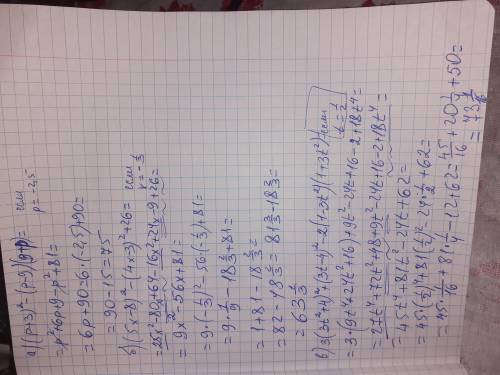 а) (p+3)² - (p-9)(9+p) = если p = -2,5
= p²+6p+9-p²+81 =
= 6p+90 = 6·(-2,5)+90 =
= 90-15 = 75
б) (5x-8)² - (4x-3)² + 26 = если x = -1/3
= 25x²-80x+64-16x²+24x-9+26 =
= 9x²-56x+81 =
= 9·(-1/3)²-56·(-1/3)+81 =
= 9·1/9 - 18 2/3 + 81 =
= 1+81-18 2/3 =
= 82-18 2/3 = 81 3/3 - 18 2/3 =
= 63 1/3
в) 3(3t²+4)² + (3t-4)² - 2(1-3t²)(1+3t²) если t = 1/2
= 3·(9t⁴+24t²+16)+9t²-24t+16-2+18t⁴ =
= 27t⁴+72t²+48+9t²-24t+16-2+18t⁴ =
= 45t⁴+81t²-24t+62 =
= 45·(1/2)⁴+81·(1/2)²-24·1/2+62 =
= 45·1/16+81·1/4-12+62 = 45/16+20 1/4+50 =